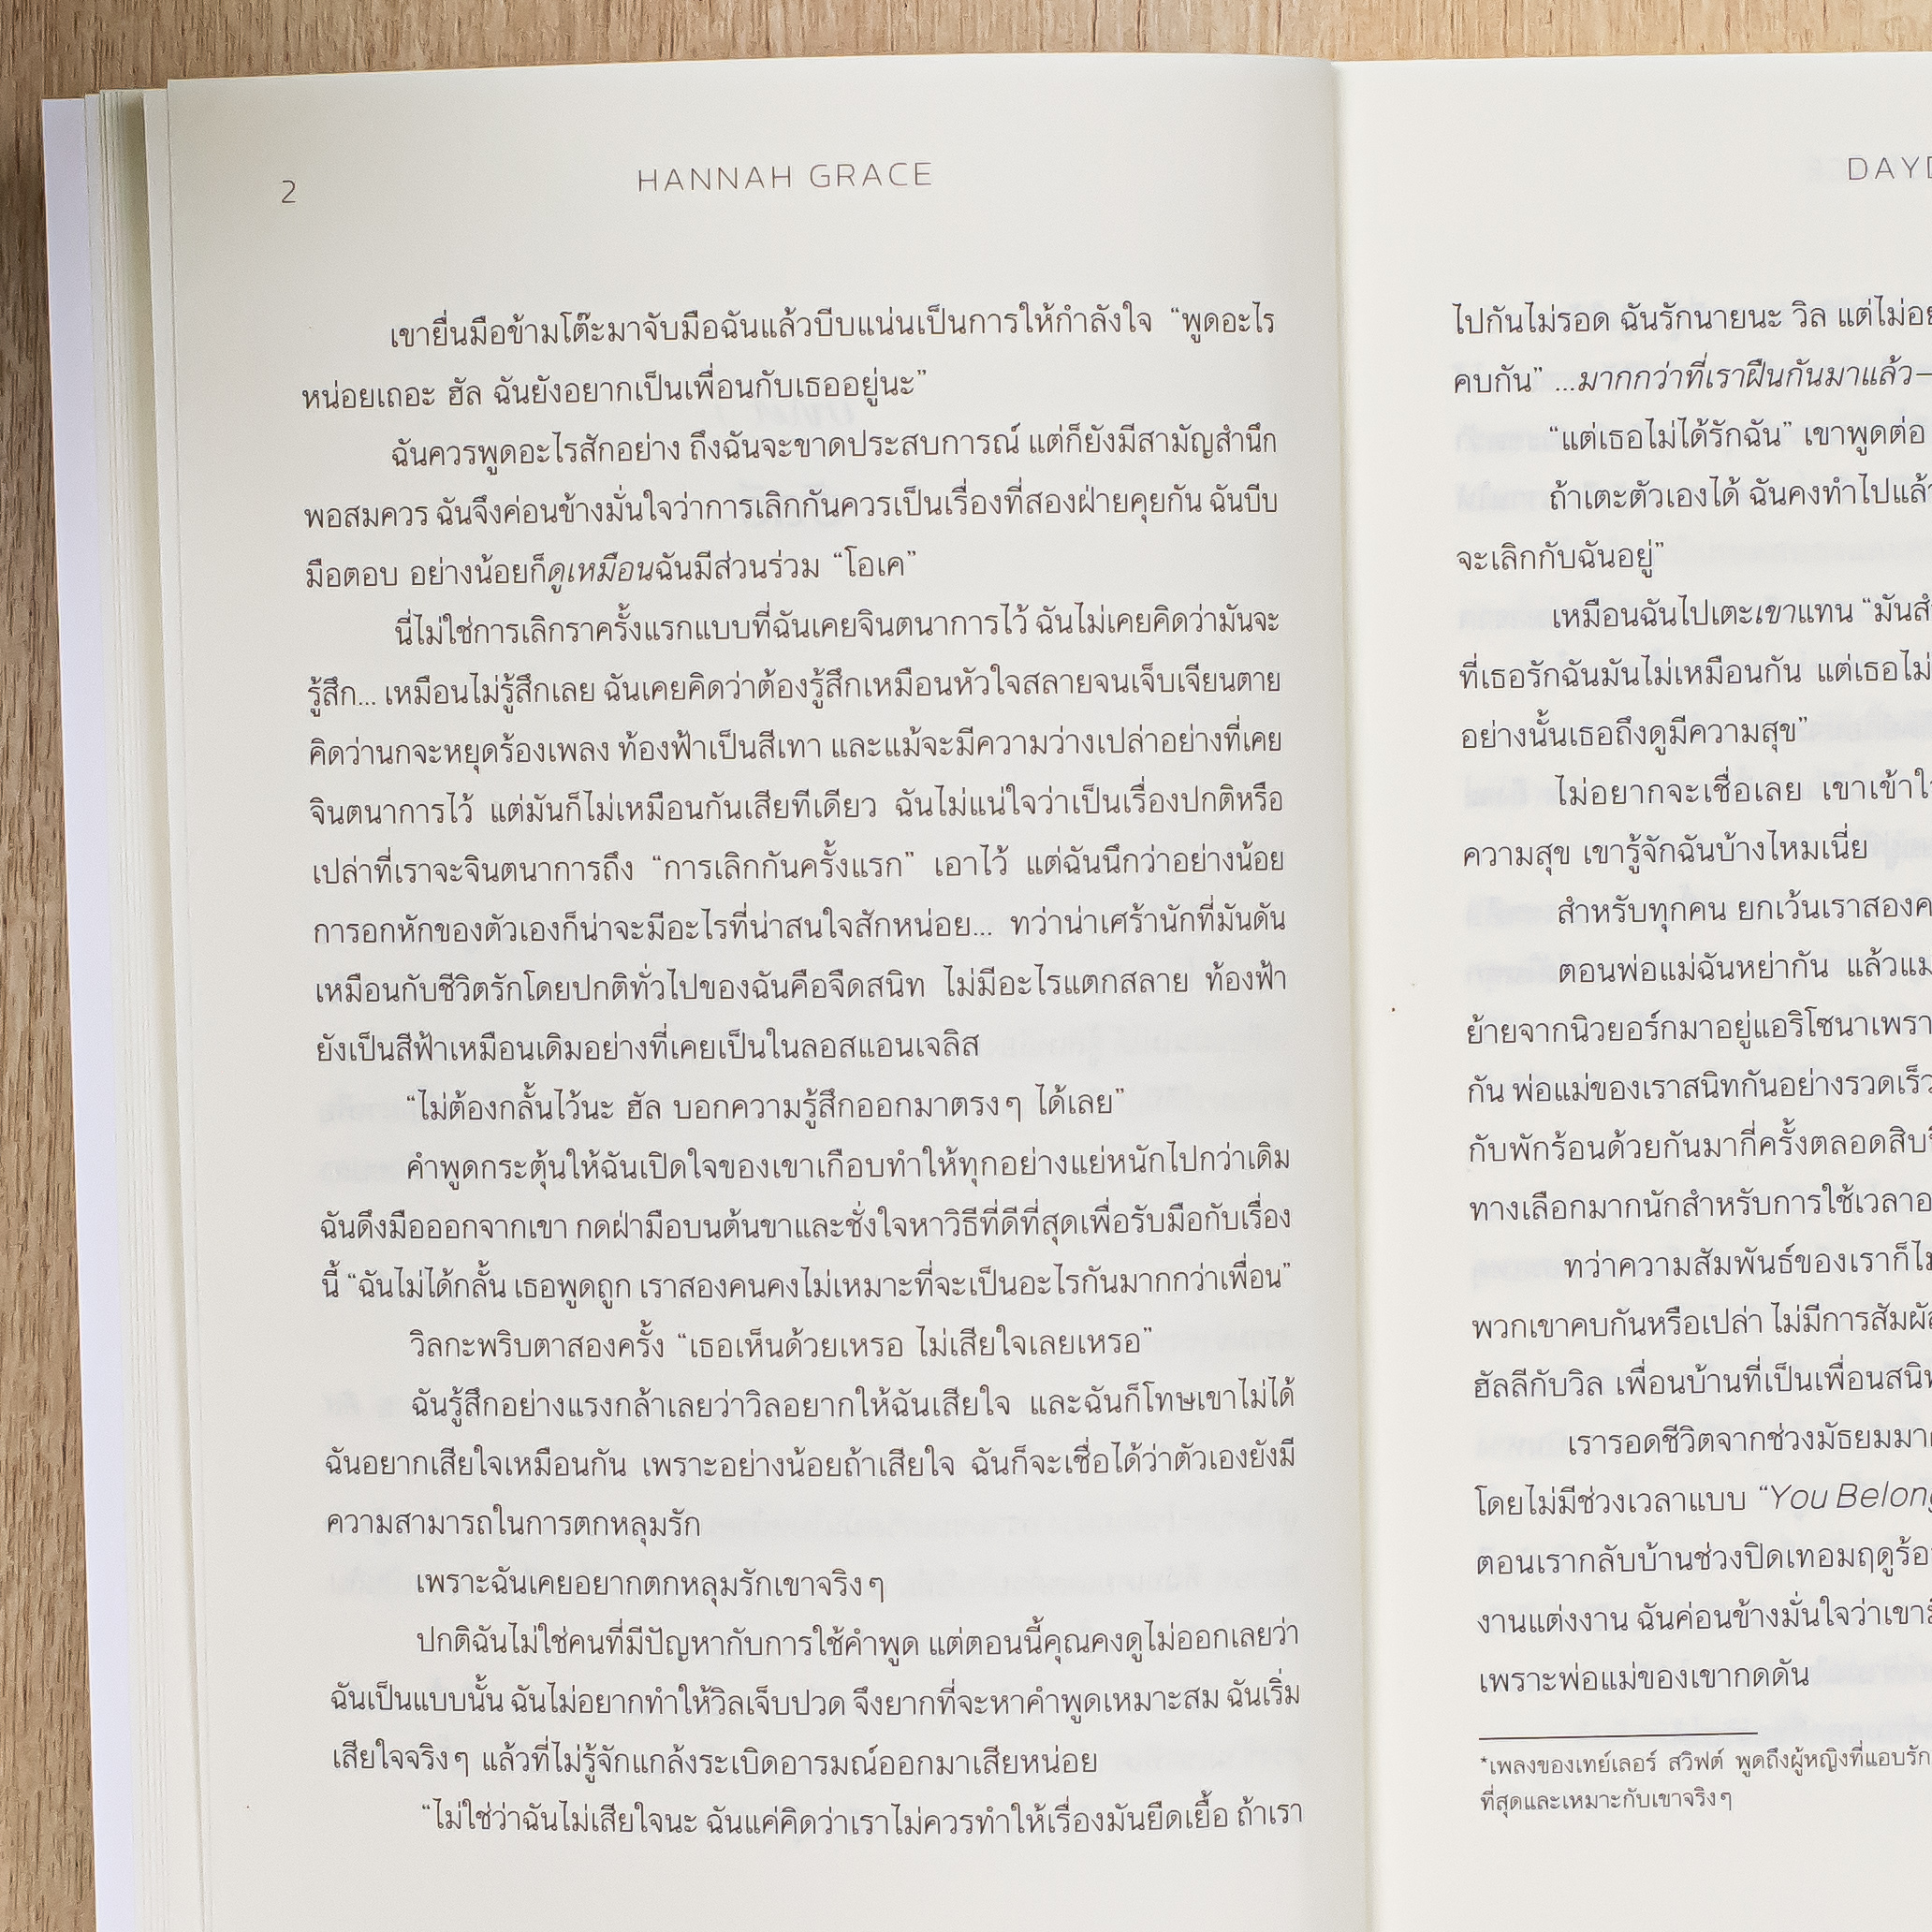 2
HANNAH GRACE
เขายื่นมือข้ามโต๊ะมาจับมือฉันแล้วบีบแน่นเป็นการให้กำลังใจ “พูดอะไร
หน่อยเถอะ ฮัล ฉันยังอยากเป็นเพื่อนกับเธออยู่นะ”
ฉันควรพูดอะไรสักอย่าง ถึงฉันจะขาดประสบการณ์ แต่ก็ยังมีสามัญสำนึก
พอสมควร ฉันจึงค่อนข้างมั่นใจว่าการเลิกกันควรเป็นเรื่องที่สองฝ่ายคุยกัน ฉันบีบ
มือตอบ อย่างน้อยก็ดูเหมือนฉันมีส่วนร่วม “โอเค”
นี่ไม่ใช่การเลิกราครั้งแรกแบบที่ฉันเคยจินตนาการไว้ ฉันไม่เคยคิดว่ามันจะ
รู้สึก... เหมือนไม่รู้สึกเลย ฉันเคยคิดว่าต้องรู้สึกเหมือนหัวใจสลายจนเจ็บเจียนตาย
คิดว่านกจะหยุดร้องเพลง ท้องฟ้าเป็นสีเทา และแม้จะมีความว่างเปล่าอย่างที่เคย
จินตนาการไว้ แต่มันก็ไม่เหมือนกันเสียทีเดียว ฉันไม่แน่ใจว่าเป็นเรื่องปกติหรือ
เปล่าที่เราจะจินตนาการถึง “การเลิกกันครั้งแรก” เอาไว้ แต่ฉันนึกว่าอย่างน้อย
การอกหักของตัวเองก็น่าจะมีอะไรที่น่าสนใจสักหน่อย... ทว่าน่าเศร้านักที่มันดัน
เหมือนกับชีวิตรักโดยปกติทั่วไปของฉันคือจืดสนิท ไม่มีอะไรแตกสลาย ท้องฟ้า
ยังเป็นสีฟ้าเหมือนเดิมอย่างที่เคยเป็นในลอสแอนเจลิส
“ไม่ต้องกลั้นไว้นะ ฮัล บอกความรู้สึกออกมาตรงๆ ได้เลย”
คำพูดกระตุ้นให้ฉันเปิดใจของเขาเกือบทำให้ทุกอย่างแย่หนักไปกว่าเดิม
ฉันดึงมือออกจากเขา กดฝ่ามือบนต้นขาและชั่งใจหาวิธีที่ดีที่สุดเพื่อรับมือกับเรื่อง
นี้ “ฉันไม่ได้กลั้น เธอพูดถูก เราสองคนคงไม่เหมาะที่จะเป็นอะไรกันมากกว่าเพื่อน”
วิลกะพริบตาสองครั้ง “เธอเห็นด้วยเหรอ ไม่เสียใจเลยเหรอ”
ฉันรู้สึกอย่างแรงกล้าเลยว่าวิลอยากให้ฉันเสียใจ และฉันก็โทษเขาไม่ได้
ฉันอยากเสียใจเหมือนกัน เพราะอย่างน้อยถ้าเสียใจ ฉันก็จะเชื่อได้ว่าตัวเองยังมี
ความสามารถในการตกหลุมรัก
เพราะฉันเคยอยากตกหลุมรักเขาจริงๆ
ปกติฉันไม่ใช่คนที่มีปัญหากับการใช้คำพูด แต่ตอนนี้คุณคงดูไม่ออกเลยว่า
ฉันเป็นแบบนั้น ฉันไม่อยากทำให้วิลเจ็บปวด จึงยากที่จะหาคำพูดเหมาะสม ฉันเริ่ม
เสียใจจริงๆ แล้วที่ไม่รู้จักแกล้งระเบิดอารมณ์ออกมาเสียหน่อย
“ไม่ใช่ว่าฉันไม่เสียใจนะ ฉันแค่คิดว่าเราไม่ควรทำให้เรื่องมันยืดเยื้อ ถ้าเรา
DAYD
ไปกันไม่รอด ฉันรักนายนะ วิล แต่ไม่อย
คบกัน” ...มากกว่าที่เราฝืนกันมาแล้ว–
“แต่เธอไม่ได้รักฉัน” เขาพูดต่อ
ถ้าเตะตัวเองได้ ฉันคงทำไปแล้ว
จะเลิกกับฉันอยู่”
เหมือนฉันไปเตะเขาแทน “มันสำ
ที่เธอรักฉันมันไม่เหมือนกัน แต่เธอไม่
อย่างนั้นเธอถึงดูมีความสุข”
ไม่อยากจะเชื่อเลย เขาเข้าใ
ความสุข เขารู้จักฉันบ้างไหมเนี่ย
สำหรับทุกคน ยกเว้นเราสองค
ตอนพ่อแม่ฉันหย่ากัน แล้วแม
ย้ายจากนิวยอร์กมาอยู่แอริโซนาเพรา
กัน พ่อแม่ของเราสนิทกันอย่างรวดเร็ว
กับพักร้อนด้วยกันมากี่ครั้งตลอดสิบ
ทางเลือกมากนักสำหรับการใช้เวลาอ
ทว่าความสัมพันธ์ของเราก็ไม
พวกเขาคบกันหรือเปล่า ไม่มีการสัมผั
ฮัลลีกับวิล เพื่อนบ้านที่เป็นเพื่อนสนิท
เรารอดชีวิตจากช่วงมัธยมมา
โดยไม่มีช่วงเวลาแบบ “You Belong
ตอนเรากลับบ้านช่วงปิดเทอมฤดูร้อ
งานแต่งงาน ฉันค่อนข้างมั่นใจว่าเขา
เพราะพ่อแม่ของเขากดดัน
*เพลงของเทย์เลอร์ สวิฟต์ พูดถึงผู้หญิงที่แอบรัก
ที่สุดและเหมาะกับเขาจริงๆ